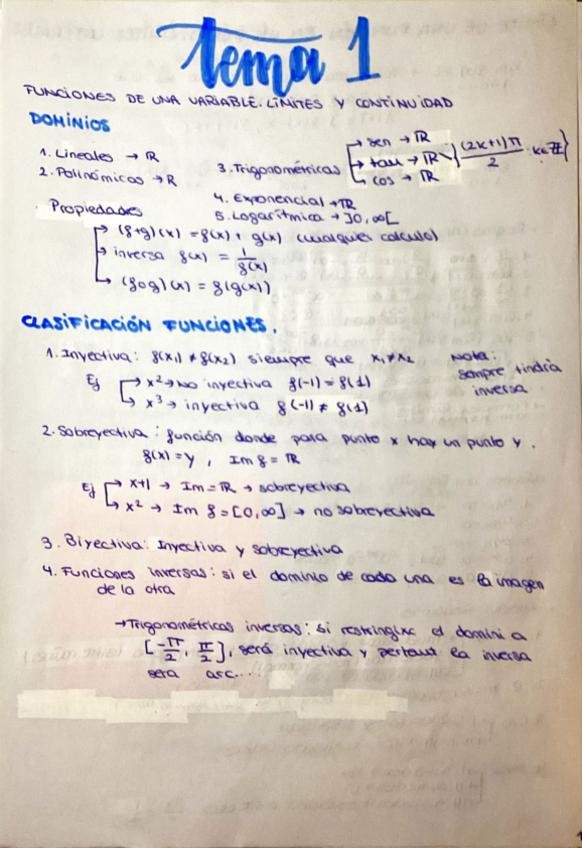 tema 1
FUNCIONES DE UNA VARIABLE. LÍMITES Y CONTINUIDAD
DOMINIOS
1. Lineales → ℝ
2. Polinómicos → ℝ
3. Trigonométricas
→ sen → ℝ
→ tan → ℝ \ { (2k+1)π / 2 : k∈ℤ }
→ cos → ℝ
4. Exponencial → ℝ
5. Logarítmica → ]0, ∞[
Propiedades
→ (f+g)(x) = f(x) + g(x) (cualquier calculo)
→ inversa f(x) = 1 / f(x)
→ (f∘g)(x) = f(g(x))
CLASIFICACIÓN FUNCIONES.
1. Inyectiva: f(x₁) ≠ f(x₂) siempre que x₁ ≠ x₂
Nota:
sempre tindrà
inversa
Ej → x² → no inyectiva f(-1) = f(1)
→ x³ → inyectiva f(-1) ≠ f(1)
2. Sobreyectiva: función donde para punto x hay un punto y.
f(x) = y, Im f = ℝ
Ej → x+1 → Im = ℝ → sobreyectiva
→ x² → Im f = [0, ∞] → no sobreyectiva
3. Biyectiva: Inyectiva y sobreyectiva
4. Funciones inversas: si el dominio de cada una es la imagen
de la otra
→ Trigonométricas inversas: si restringixc el domini a
[-π/2, π/2], será inyectiva y pertant la inversa
sera arc...
1